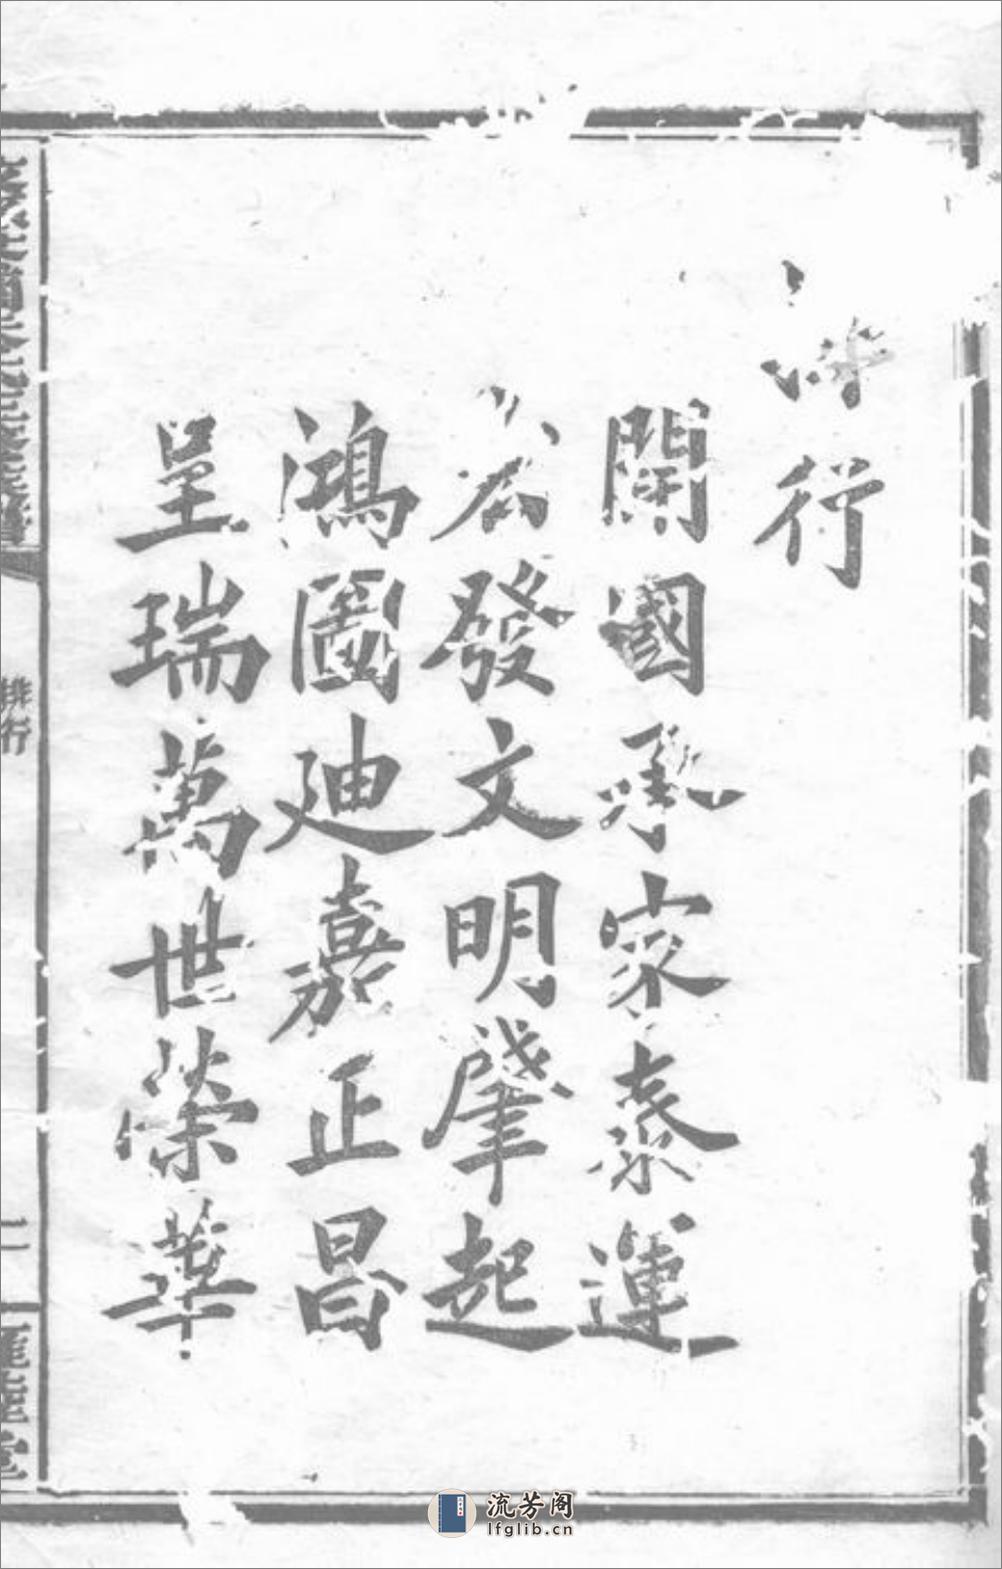 行
開國承家泰運
宏發文明肇起
鴻圖廸嘉正昌
呈瑞萬世榮華
排行
二
流芳阁
lfglib.cn